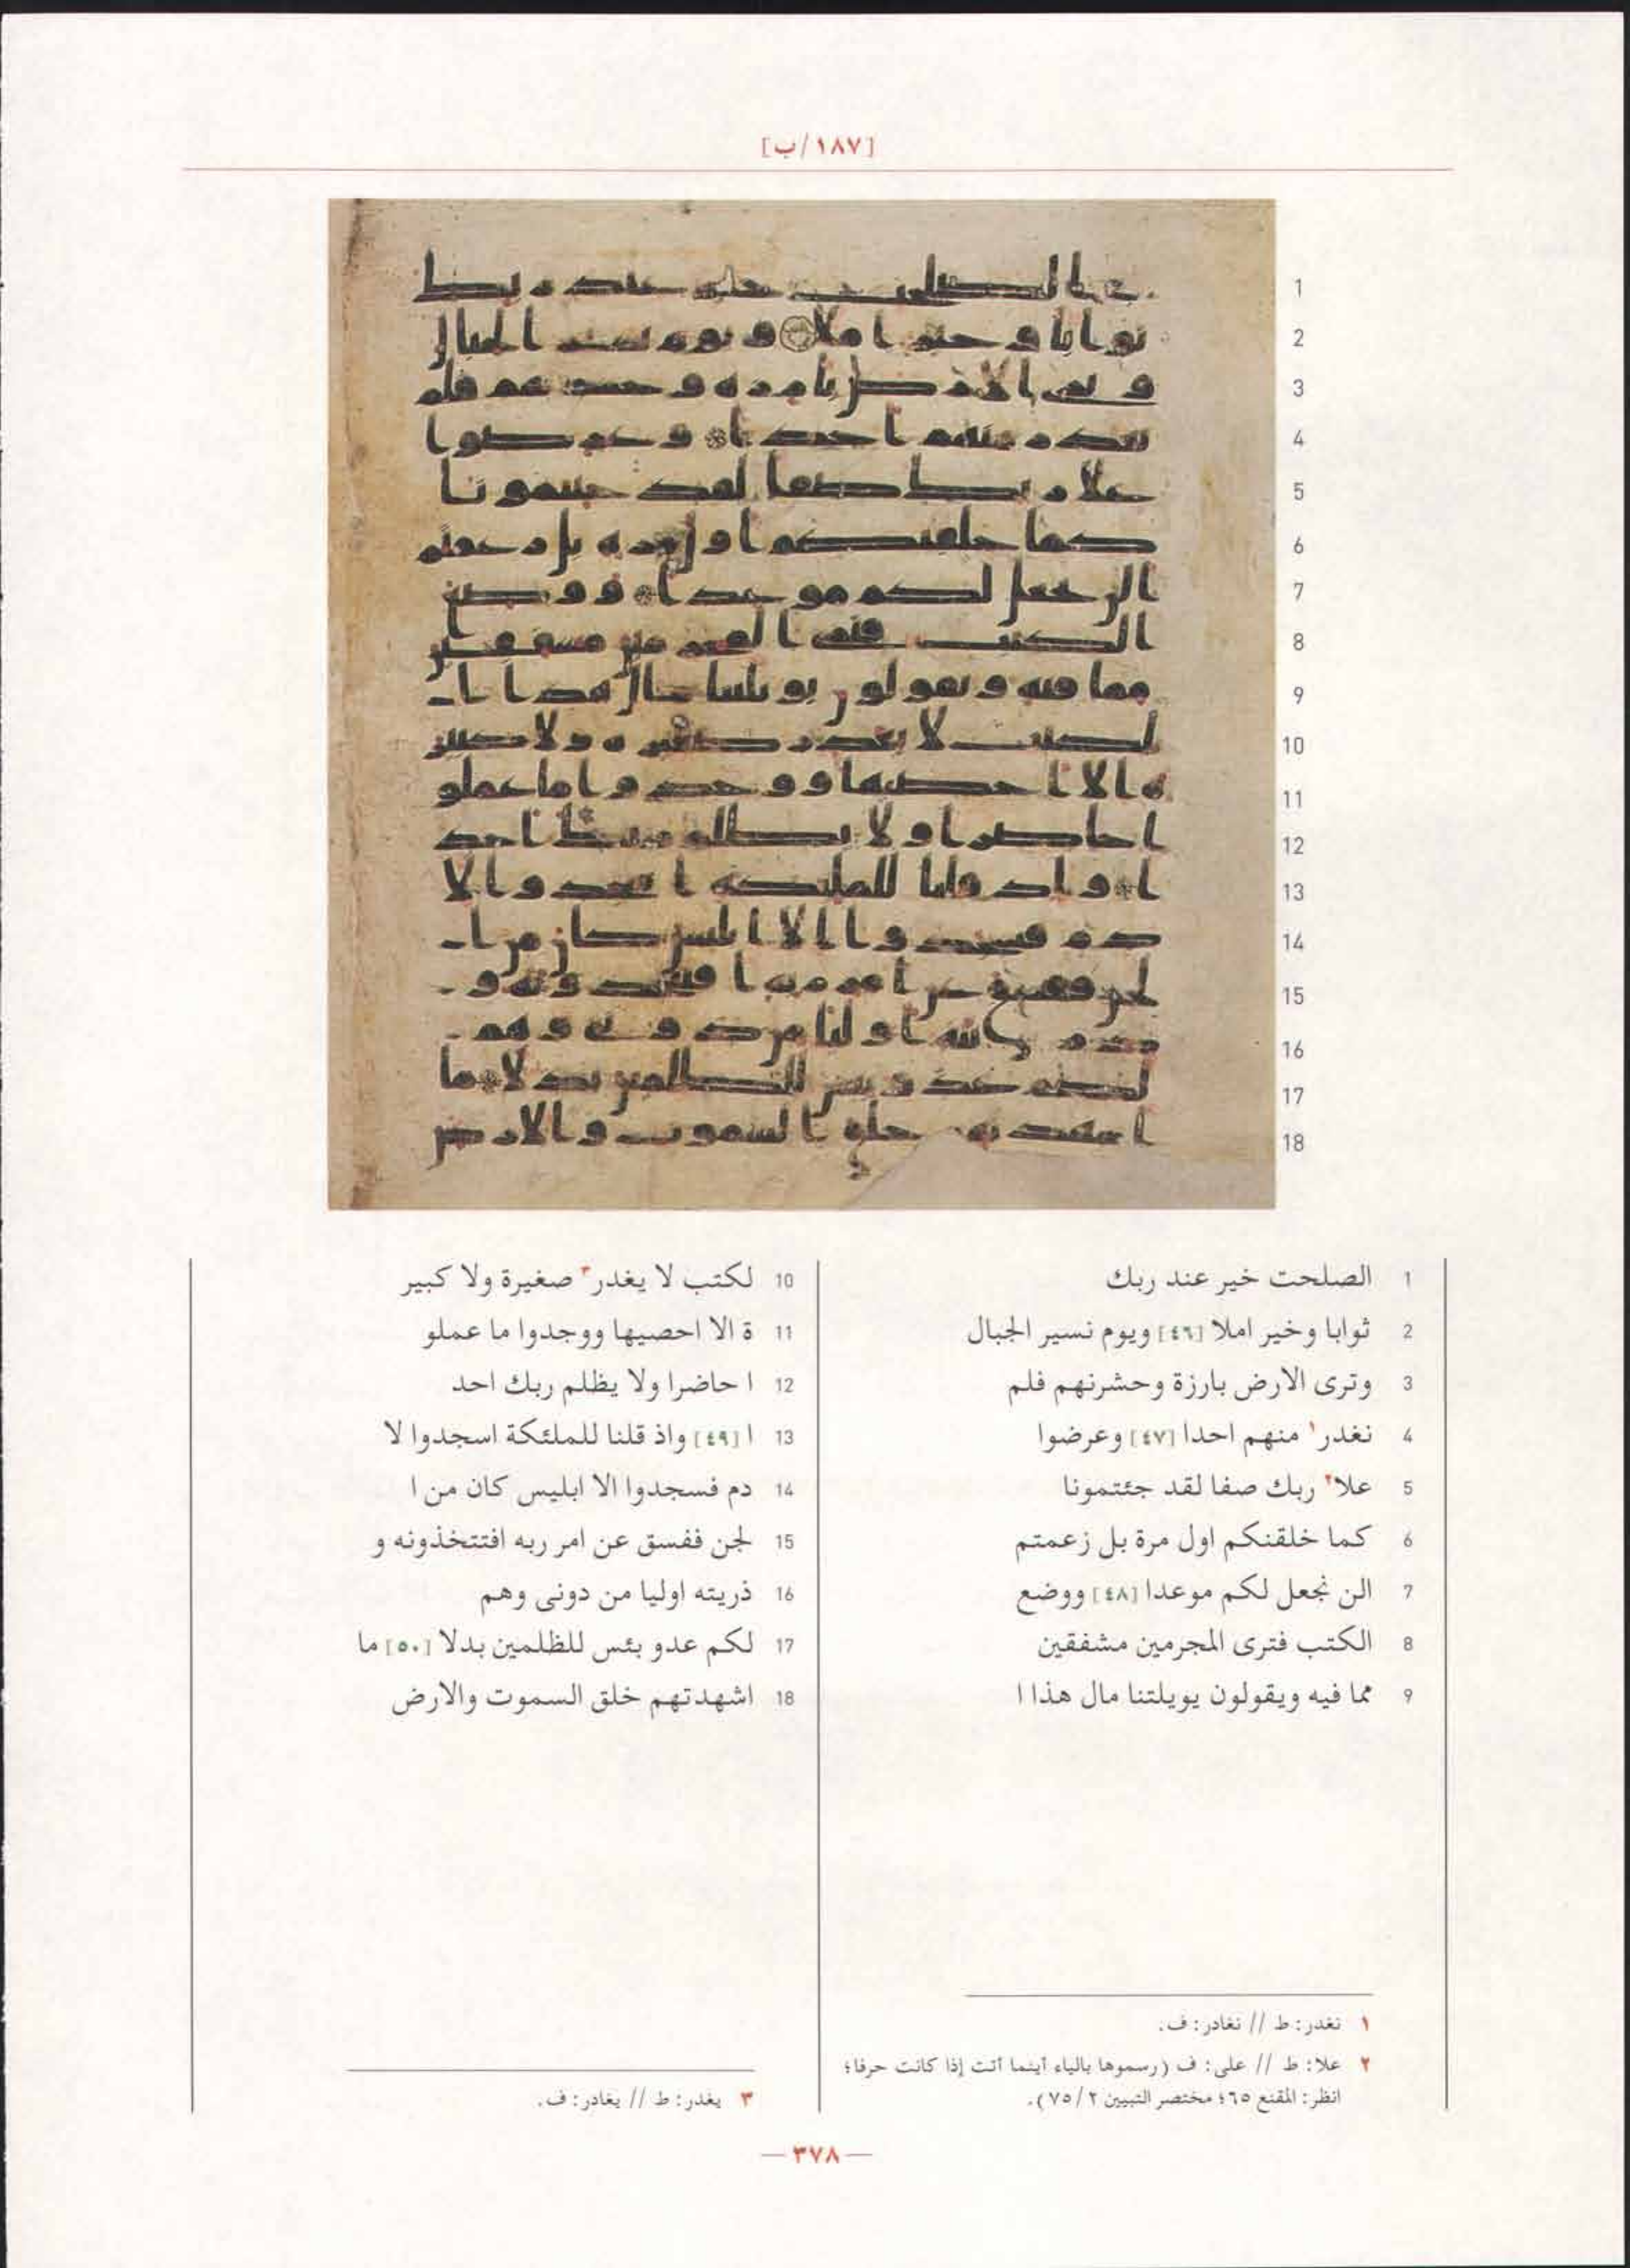 [١٨٧/ب]
1 الصلحت خير عند ربك
2 ثوابا وخير املا [٤٦] ويوم نسير الجبال
3 وترى الارض بارزة وحشرنهم فلم
4 نغدر١ منهم احدا [٤٧] وعرضوا
5 علا٢ ربك صفا لقد جئتمونا
6 كما خلقنكم اول مرة بل زعمتم
7 الن نجعل لكم موعدا [٤٨] ووضع
8 الكتب فترى المجرمين مشفقين
9 مما فيه ويقولون يويلتنا مال هذا ا
10 لكتب لا يغدر٣ صغيرة ولا كبير
11 ة الا احصيها ووجدوا ما عملو
12 ا حاضرا ولا يظلم ربك احد
13 ا [٤٩] واذ قلنا للملئكة اسجدوا لا
14 دم فسجدوا الا ابليس كان من ا
15 لجن ففسق عن امر ربه افتتخذونه و
16 ذريته اوليا من دونى وهم
17 لكم عدو بئس للظلمين بدلا [٥٠] ما
18 اشهدتهم خلق السموت والارض
١ نغدر: ط // نغادر: ف.
٢ علا: ط // على: ف (رسموها بالياء أينما أتت إذا كانت حرفا؛
انظر: المقنع ٦٥؛ مختصر التبيين ٧٥/٢).
٣ يغدر: ط // يغادر: ف.
— ٣٧٨ —